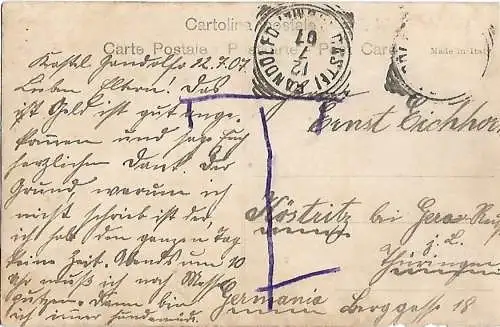 Cartolina postale
Carte Postale - Postkarte - Post Card
Made in Italy
CASTEL GANDOLFO
12 7 07
Kastel Gandolfo 12.7.07.
Lieben Eltern. Das
ist Geld ist gut ange-
kommen und sage Euch
herzlichen Dank. Der
Grund warum ich
nicht schrieb ist der,
ich hab den ganzen Tag
keine Zeit. Abends um 10
Uhr muß ich noch Messer
putzen. Dann bin
ich immer hundemüde.
T
Ernst Eichhor
Köstritz bei Gera-Reuß
j. L.
Thüringen
Germania
Berggasse 18